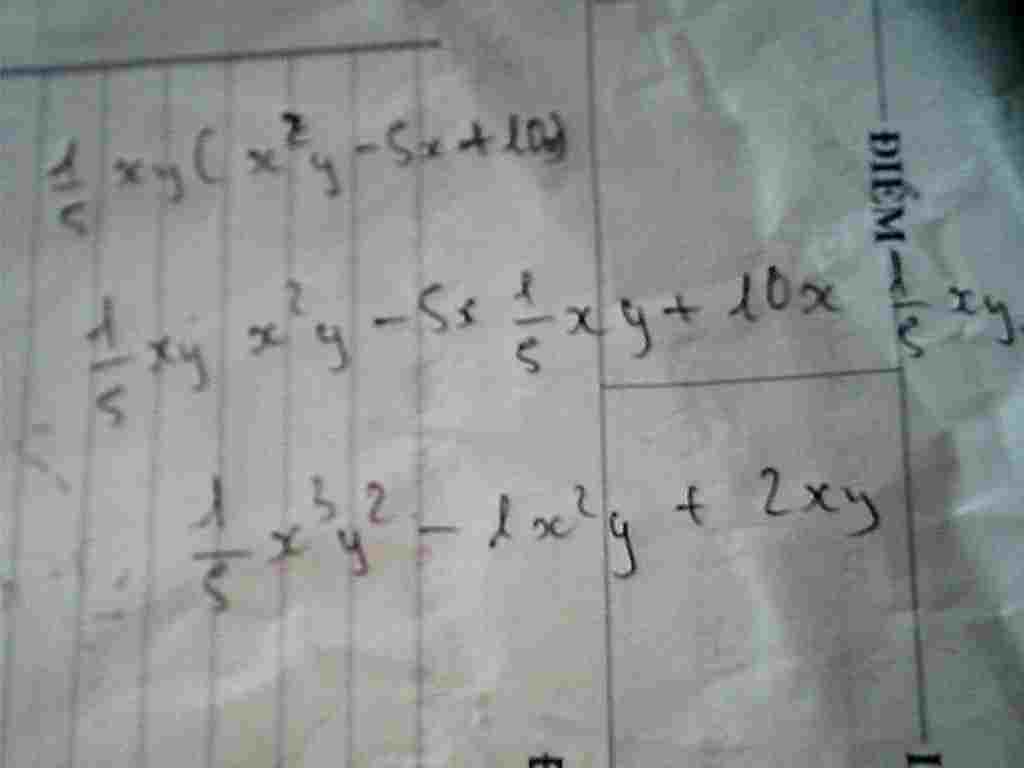 1/5 xy( x²y - 5x + 10)
1/5 xy x²y - 5x 1/5 xy + 10x 1/5 xy.
1/5 x³y² - 1x²y + 2xy
ĐIỂM